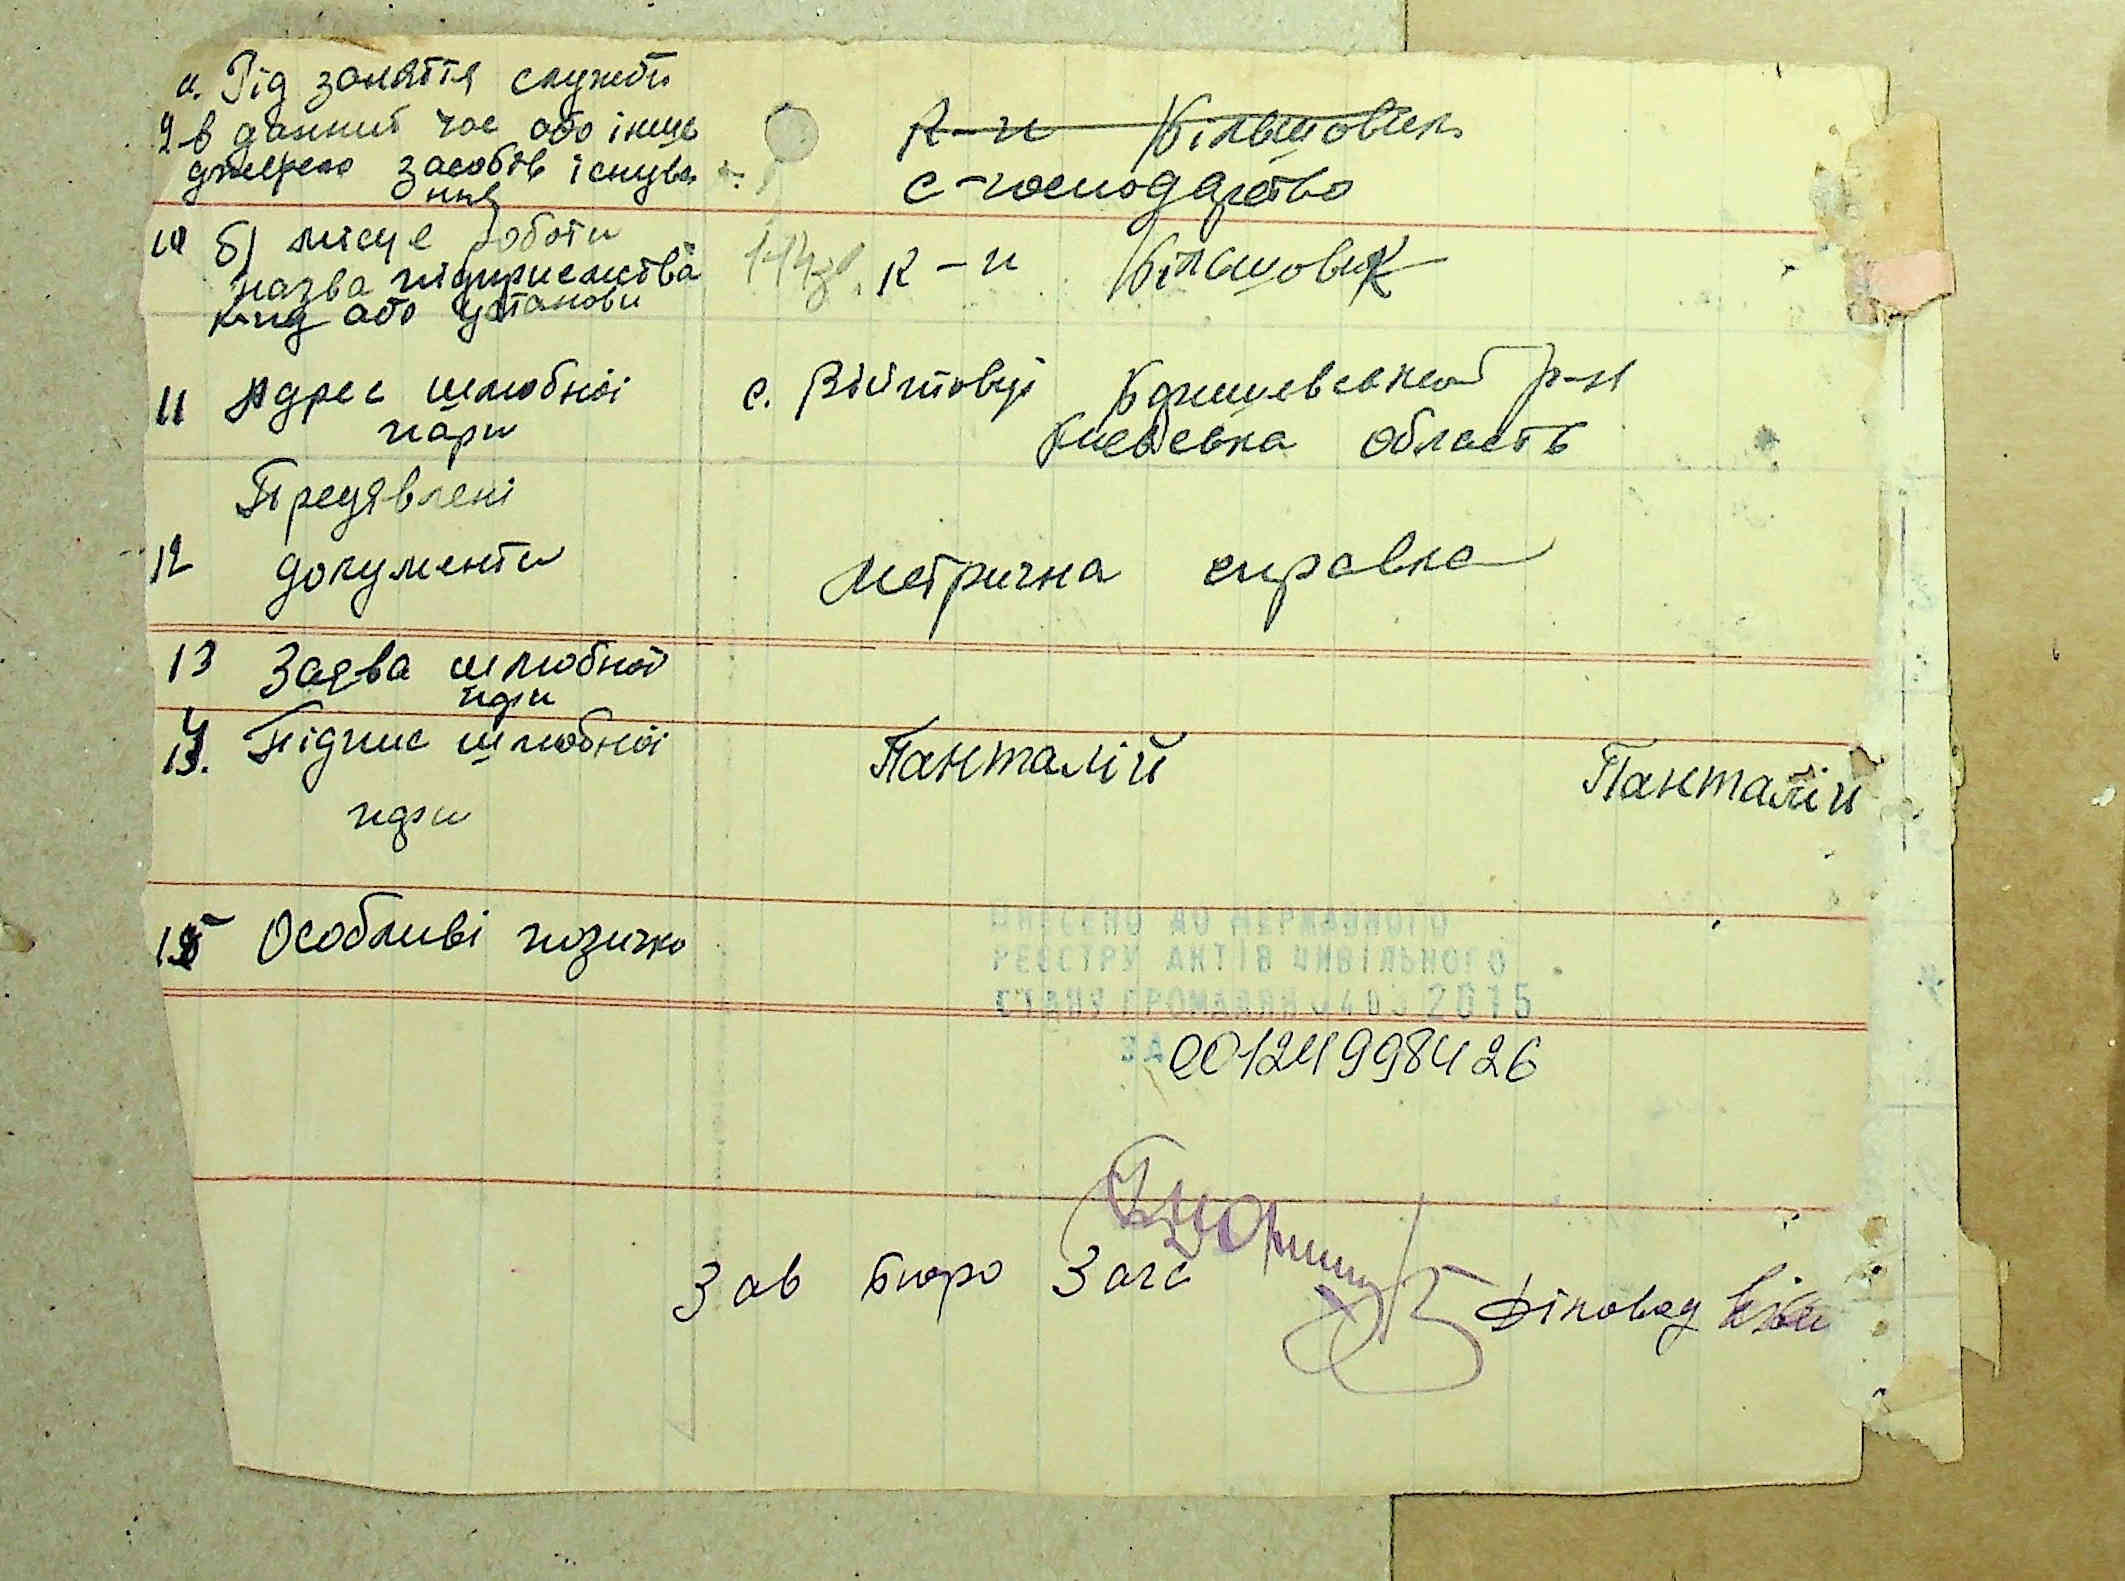 а. Рід заняття служби
9 в данний час або інше
джерело засобів існува
ння
к-п Більшовик
с-господарство
10 б) місце роботи
назва підприємства
к-пд або установи
к-п Більшовик
11 Адрес шлюбної
пари
с. Війтовці Бориспівського р-н
Києвська область
Предявлені
12 документи
метрична справка
13 Заява шлюбної
пари
14. Підпис шлюбної
пари
Панталій Панталій
15 Особливі позички
ВНЕСЕНО ДО ДЕРЖАВНОГО
РЕЄСТРУ АКТІВ ЦИВІЛЬНОГО
СТАНУ ГРОМАДЯН 0403 2015
ЗА 00124998426
Зав бюро Загс Діловод